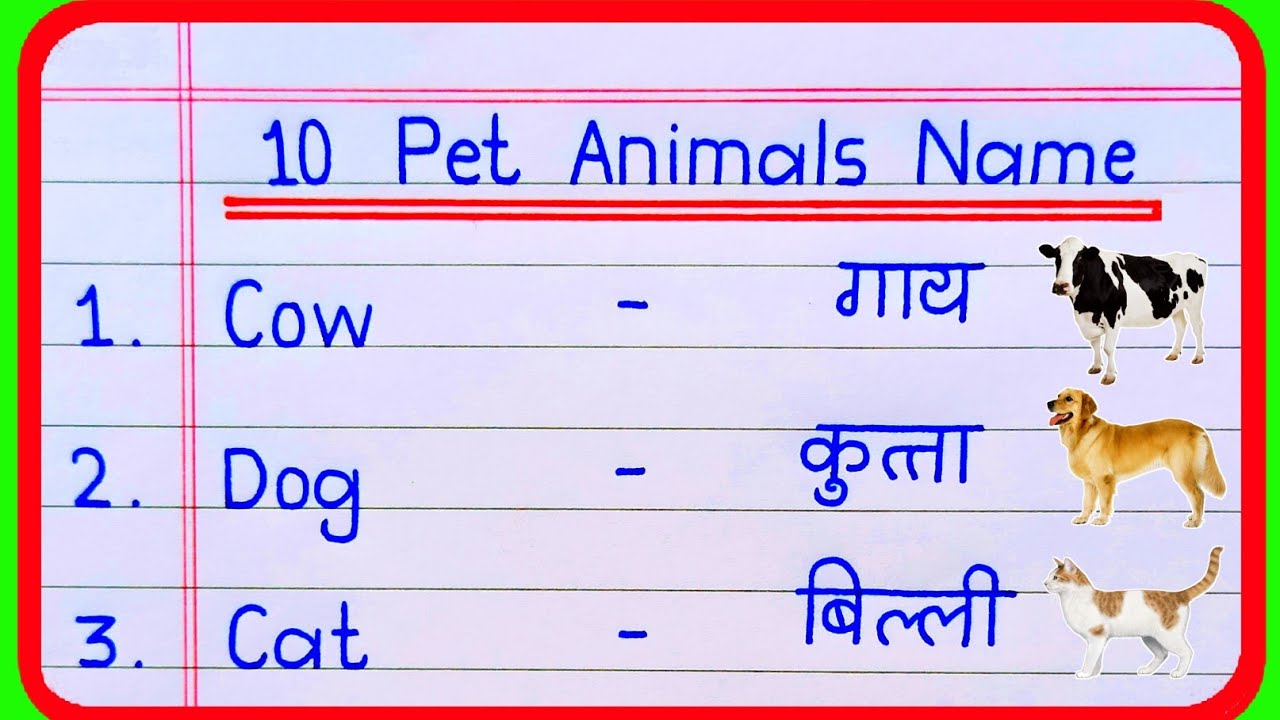 10 Pet Animals Name
1. Cow - गाय
2. Dog - कुत्ता
3. Cat - बिल्ली